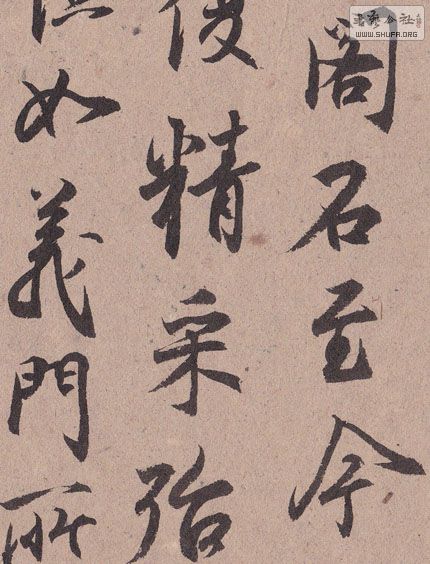 閣石至今
精采殆
如義門所
書藝公社
WWW.SHUFA.ORG